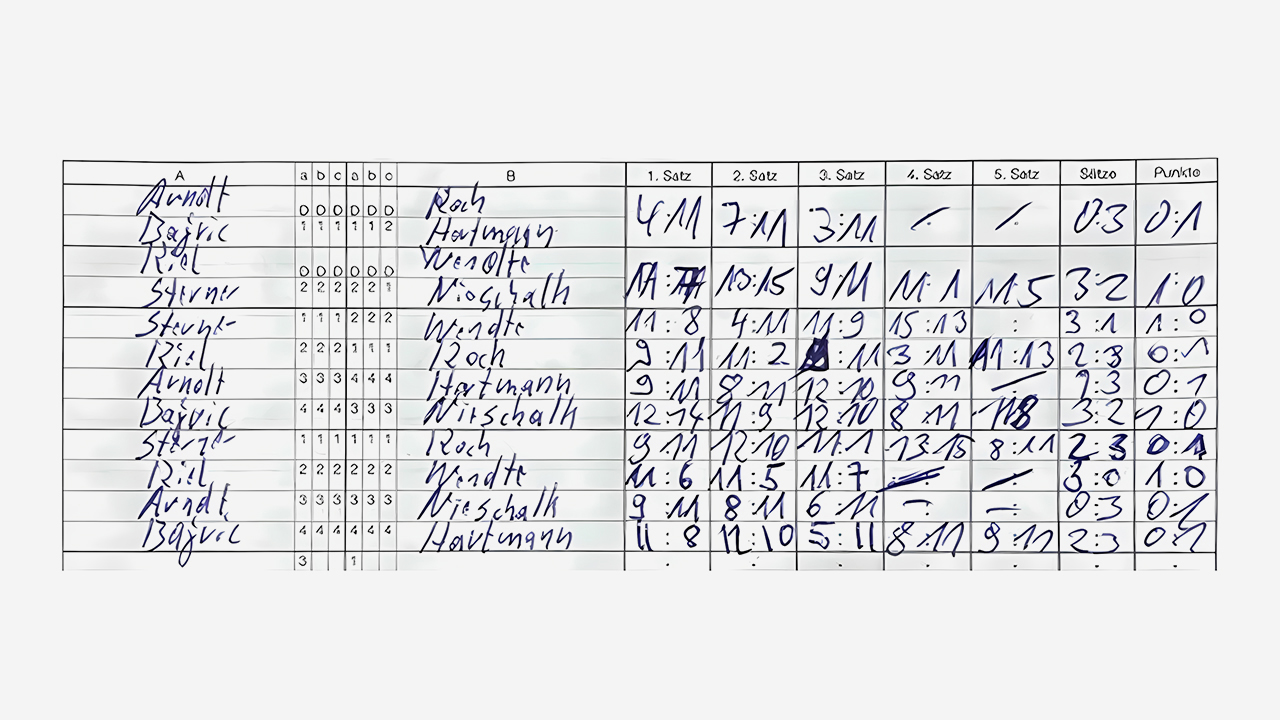 A a b c a b c B 1. Satz 2. Satz 3. Satz 4. Satz 5. Satz Sätze Punkte
Arndt 0 0 0 0 0 0 Roch
4:11 7:11 3:11 0:3 0:1
Bajric 1 1 1 1 1 2 Hartmann
Riel 0 0 0 0 0 0 Wendte
13:15 9:11 11:1 11:5 3:2 1:0
Sterner 2 2 2 2 2 1 Nieschalk
Sterner 1 1 1 2 2 2 Wendte 11:8 4:11 11:9 15:13 : 3:1 1:0
Riel 2 2 2 1 1 1 Roch 9:11 11:2 :11 3:11 11:13 2:3 0:1
Arndt 3 3 3 4 4 4 Hartmann 9:11 8:11 12:10 9:11 1:3 0:1
Bajric 4 4 4 3 3 3 Nieschalk 12:14 11:9 12:10 8:11 11:8 3:2 1:0
Sterner 1 1 1 1 1 1 Roch 9:11 12:10 11:1 13:15 8:11 2:3 0:1
Riel 2 2 2 2 2 2 Wendte 11:6 11:5 11:7 3:0 1:0
Arndt 3 3 3 3 3 3 Nieschalk 9:11 8:11 6:11 0:3 0:1
Bajric 4 4 4 4 4 4 Hartmann 11:8 12:10 5:11 8:11 9:11 2:3 0:1
3 1